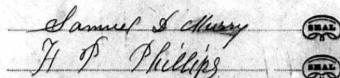 Samuel D Murry SEAL
H P Phillips SEAL